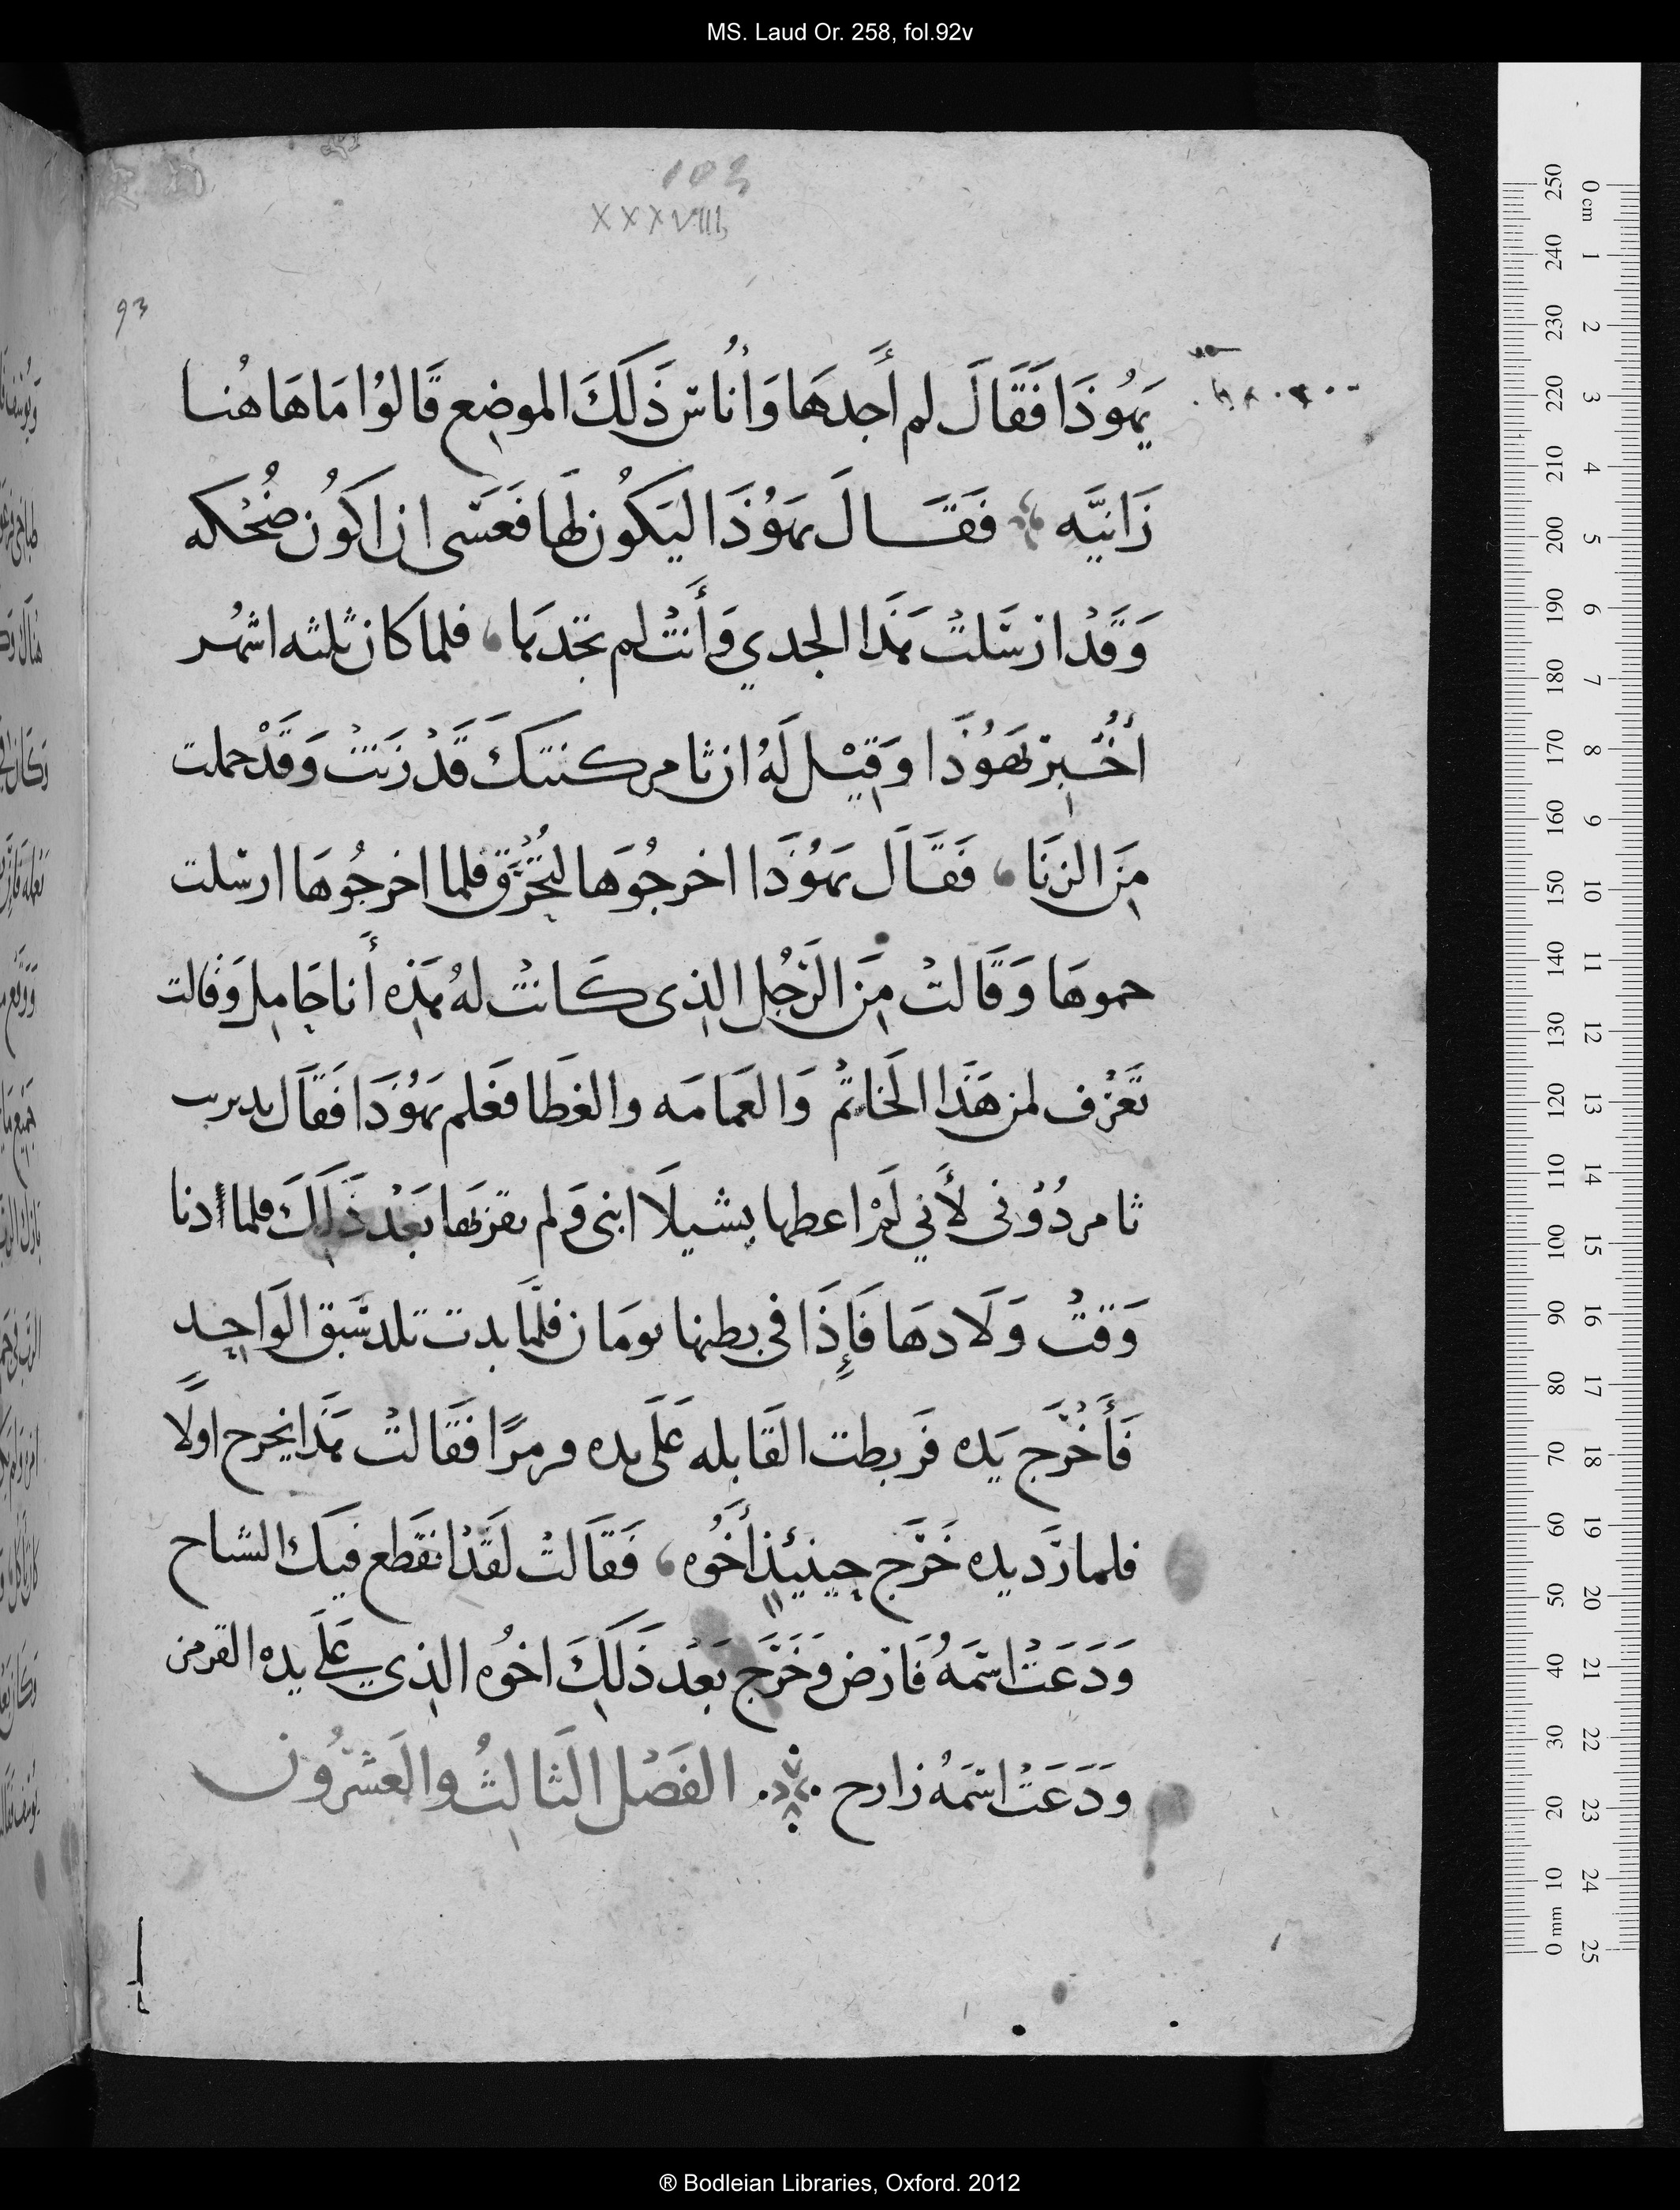 MS. Laud Or. 258, fol.92v
103
XXXVIII,
93
يَهُوذَا فَقَالَ لم أَجدهَا وَأُناس ذَلَكَ الموضِع قَالوُا مَا هَاهُنا
زَانيَّه فَقَالَ يَهَوُذَا ليَكُون لهَا فَعَسَى ان اكوُن ضُحْكه
وَقَدْ ارسَلتُ هَذَا الجدي وَأَنتْ لم تجدهَا فلما كان ثلثه اشهُر
أُخْبِرْ يَهَوُذَا وَقِيْل لَهُ ان ثامر كنتكَ قَدْ زَنتْ وَقَدْ حملت
مِنَ الزنَا فَقَالَ يَهَوُذَا اخرجُوَها لِتُحْرَّق فلما اخرجُوهَا ارسلت
حموهَا وَقَالتْ مِنَ الرَجُل الذِى كَانتْ لهُ هَذِه أَنا حَامِل وَقالت
تَعْرْف لمن هَذَا الخَاتمْ وَالعَمَامَه والغطَا فعَلم يَهَوُذَا فَقَال بديرت
ثامر دُوْنى لأَني لَمْ اعطها بشيلَا ابنى وَلم يقربَها بَعْد ذَلِكَ فلما دنا
وَقتْ وَلَادهَا فَإِذَا فى بطنها تومَان فلَّمَا بدت تلد سَبق الوَاحِد
فَأَخْرَج يَده فَربطت القَابله عَلَى يده قرمرًا فَقَالتْ هَذَا يخرح اولًا
فلما رَّد يده خَرَج حِينيئِذٍ أَخُوَه فَقَالَتْ لقَدْ انقَطع فيَك السَاح
وَدَعَتْ اسْمَهُ فَارَض وَخَرَج بَعْد ذَلِكَ اخوُه الذِي عَلَى يده القرمز
وَدَعَتْ اسْمَهُ زارح الفَصْل الثالِثُ والعشرُون
250 240 230 220 210 200 190 180 170 160 150 140 130 120 110 100 90 80 70 60 50 40 30 20 10 0 mm
0 cm 1 2 3 4 5 6 7 8 9 10 11 12 13 14 15 16 17 18 19 20 21 22 23 24 25
® Bodleian Libraries, Oxford. 2012